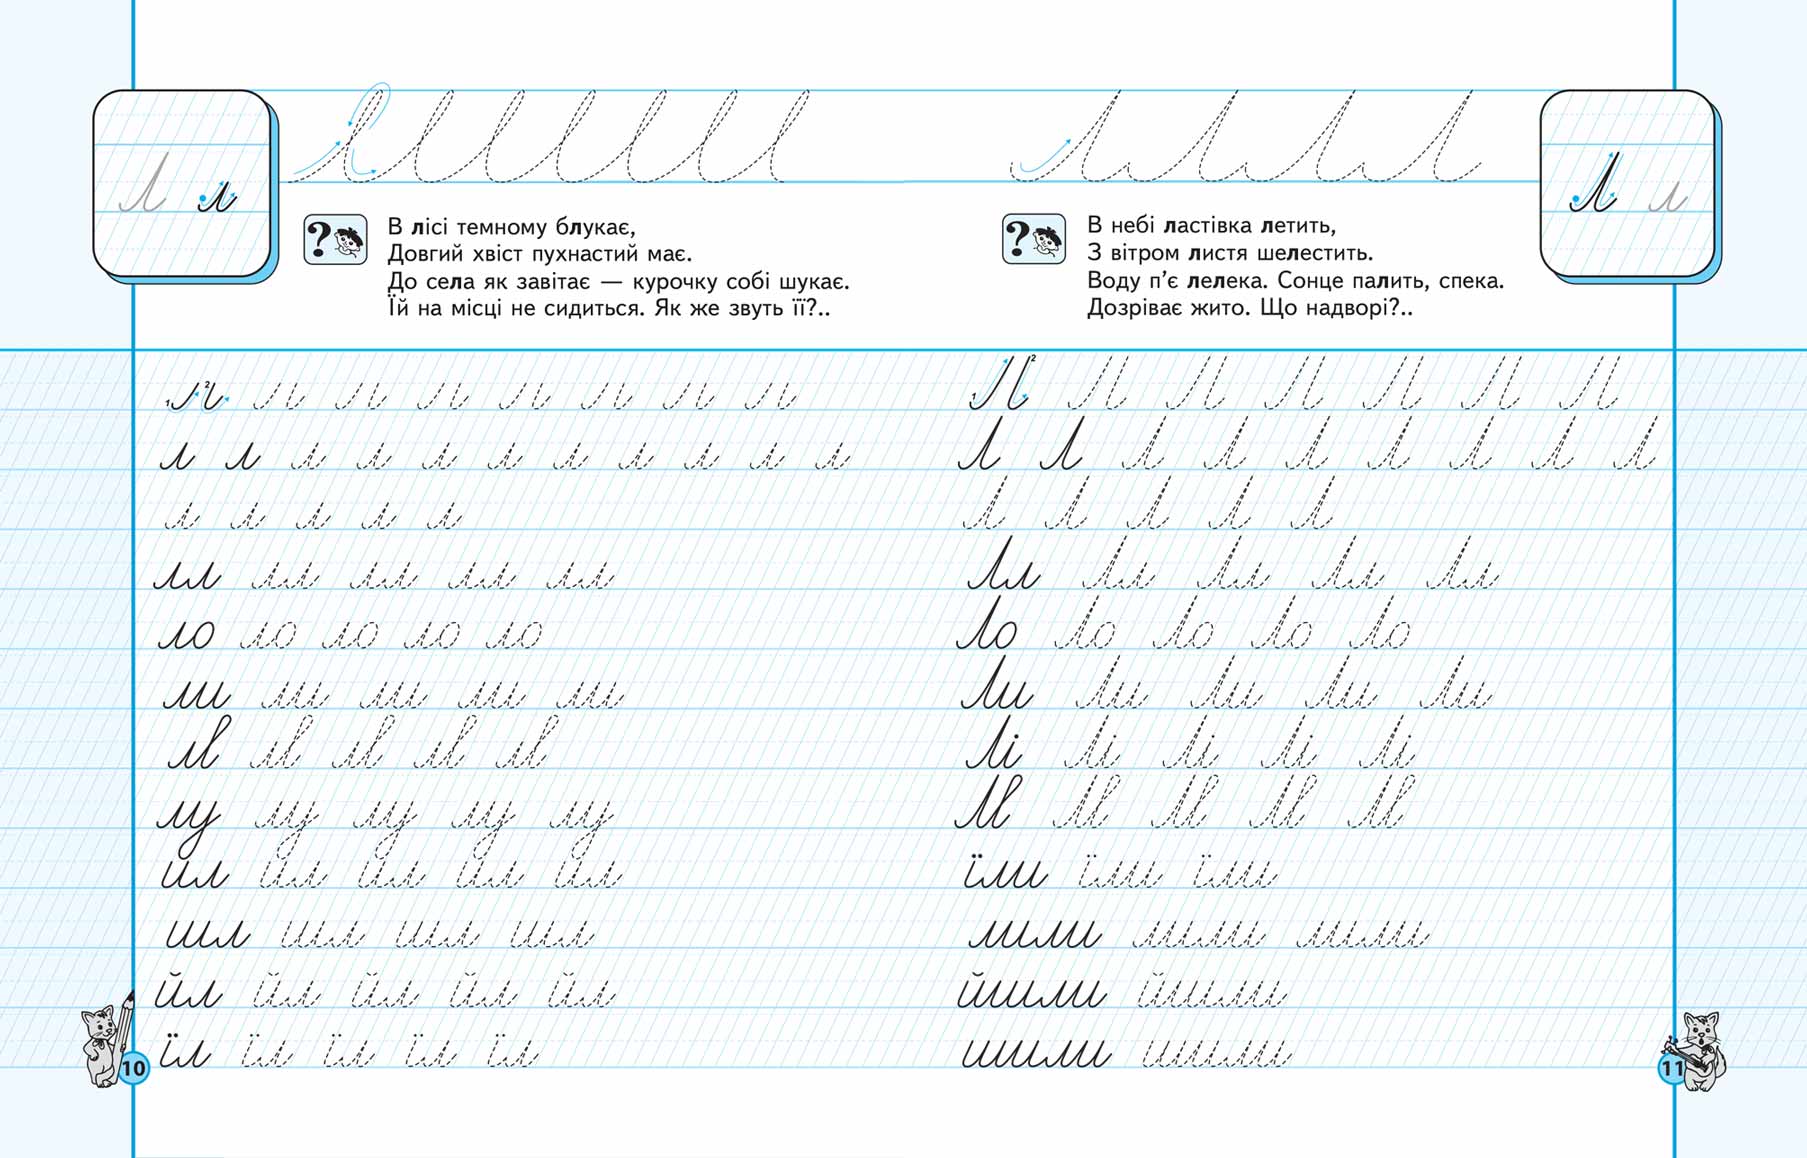 Л л
В лісі темному блукає,
Довгий хвіст пухнастий має.
До села як завітає — курочку собі шукає.
Їй на місці не сидиться. Як же звуть її?..
1 2
л л л л л л л л л л л
л л л л л
лл лл лл лл лл
ло ло ло ло ло
ли ли ли ли ли
лв лв лв лв лв
лу лу лу лу лу
ил ил ил ил ил
шл шл шл шл
йл йл йл йл йл
їл їл їл їл їл
10
Л л
В небі ластівка летить,
З вітром листя шелестить.
Воду п’є лелека. Сонце палить, спека.
Дозріває жито. Що надворі?..
1 2
Л Л Л Л Л Л Л Л Л
Л Л Л Л Л
Лл Лл Лл Лл Лл
Ло Ло Ло Ло Ло
Ли Ли Ли Ли Ли
Лі Лі Лі Лі Лі
Лв Лв Лв Лв Лв
їли їли їли
лили лили лили
йшили йшили
шили шили
11